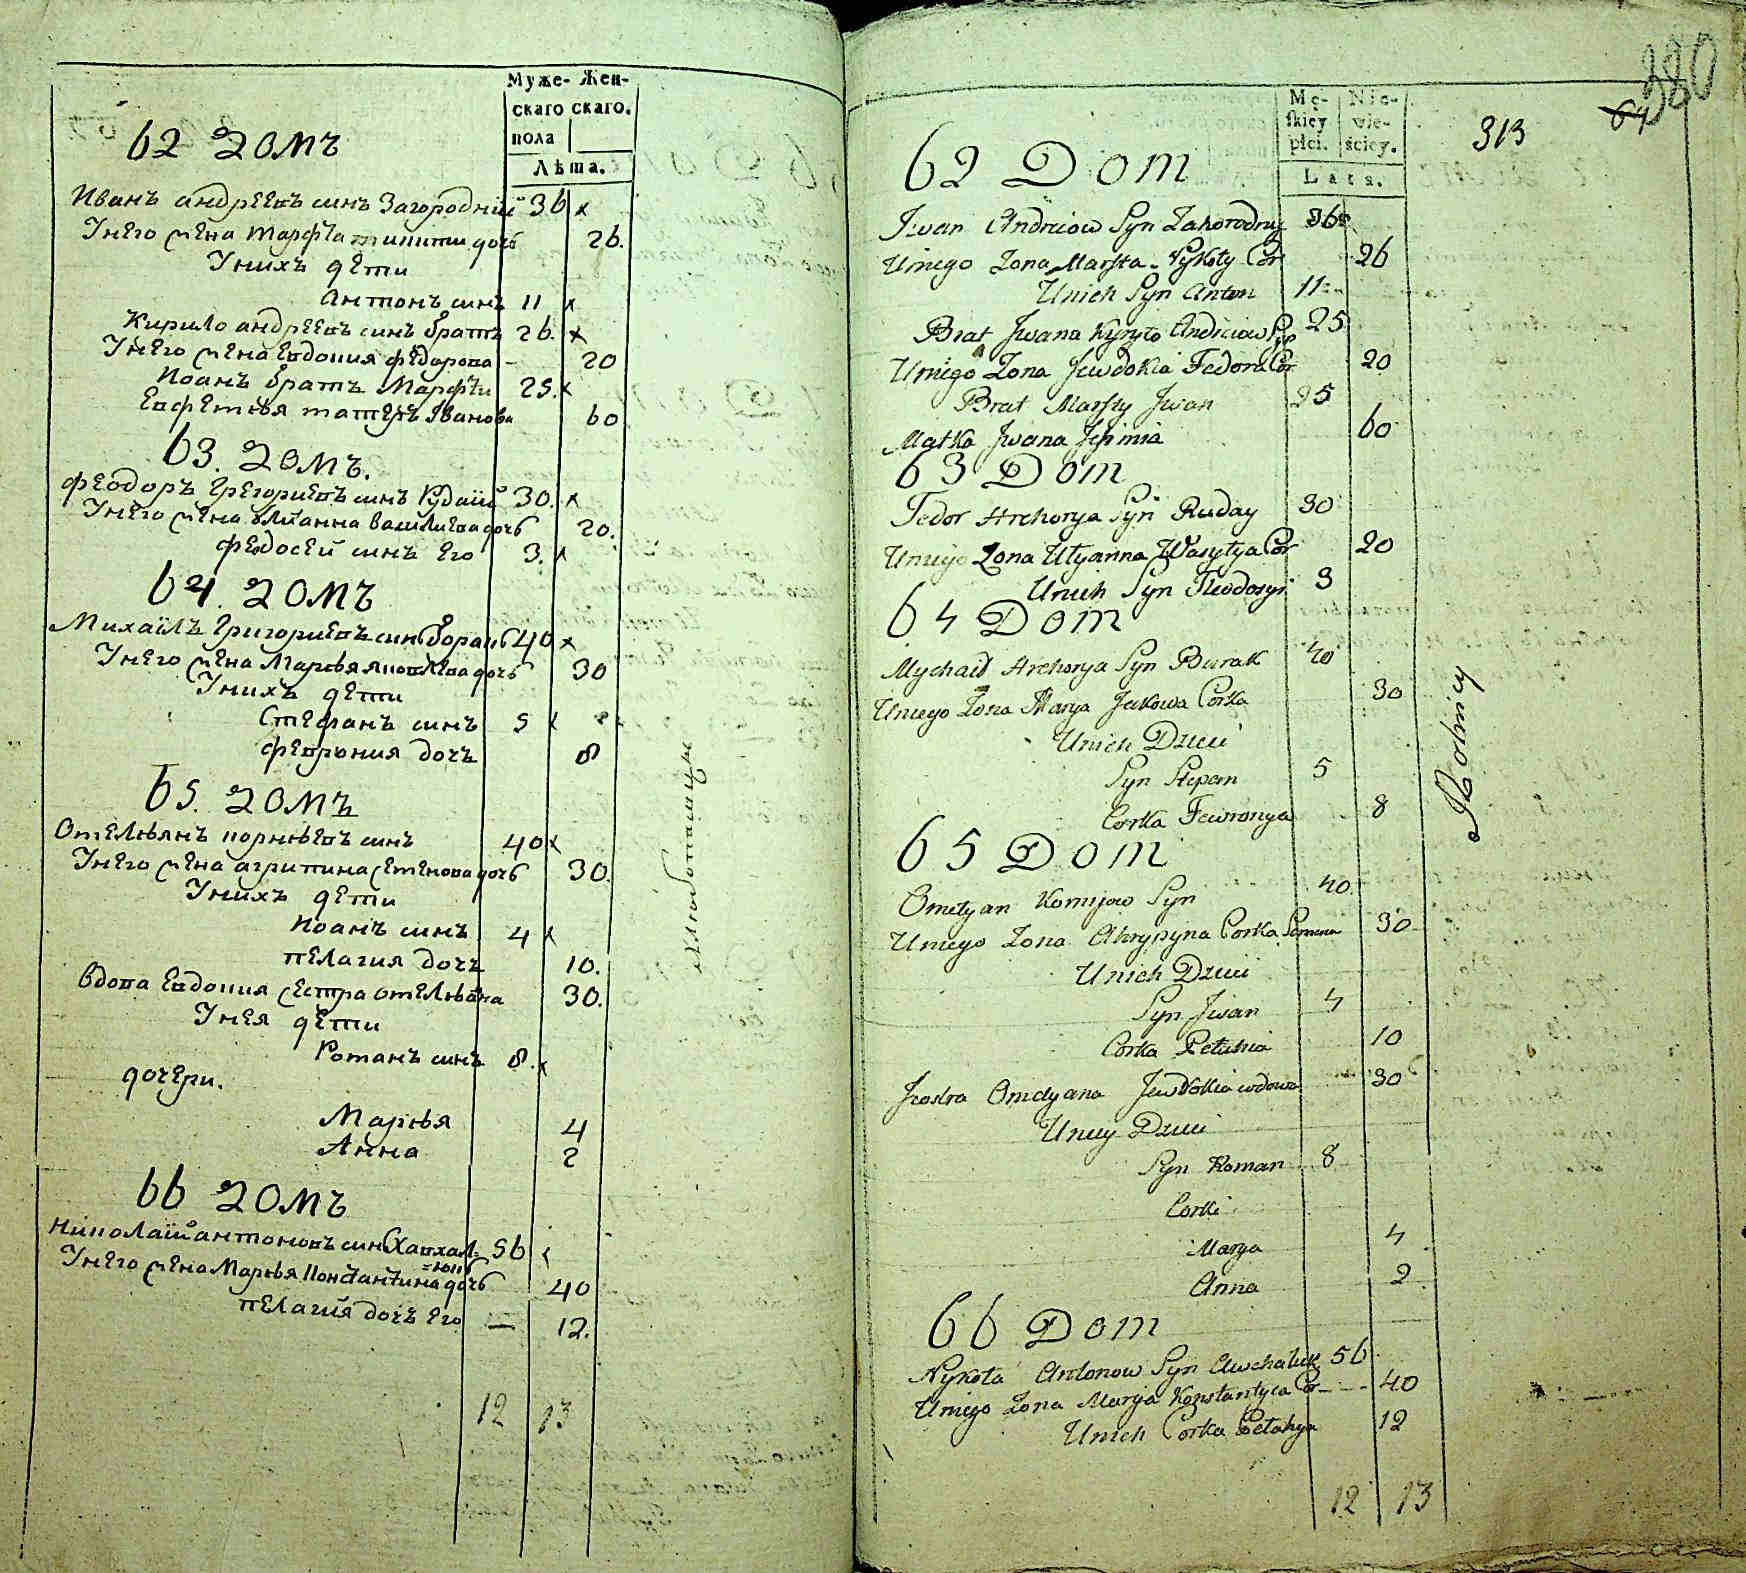 Муже- Жен-
скаго скаго.
пола
Лѣта.
62 домъ
Иванъ андрЕЕвъ синъ Загородній 36 х
УнЕго жЕна Марфѣа микити дочь 26.
Унихъ дЕти
Антонъ синъ 11 х
Кирило андрЕЕвъ синъ братъ 26. х
УнЕго жЕна Евдокия фЕдорова 20
Иоанъ братъ Марфѣи 25. х
ЕвфЕмия матЕръ Иванова 60
63. домъ.
ФЕодоръ ГрЕгориЕвъ синъ Рудай 30. х
УнЕго жЕна Улианна ВасилиЕва дочь 20.
ФЕодосЕй синъ Его 3. х
64. домъ
Михаилъ ГригориЕвъ синъ Боракъ 40 х
УнЕго жЕна Марья яковлЕва дочь 30
Унихъ дЕти
СтЕфанъ синъ 5 х
фЕврония дочъ 8
65. домъ
ОмЕльянъ корнѣЕвъ синъ 40 х
УнЕго жЕна агрипина сЕмЕнова дочь 30.
Унихъ дЕти
Иоанъ синъ 4 х
пЕлагия дочъ 10.
вдова Евдокия сЕстра омЕльяна 30.
УнЕя дЕти
Романъ синъ 8. х
дочЕри.
Марья 4
Анна 2
66 домъ
Николай антоновъ синъ Хавхал- 56 х
=юкъ
УнЕго жЕна Марья Константина дочь 40
пЕлагия дочъ Его — 12.
12 13
хлѣбопашцы
380
64
313
Mę- Nie-
skiey wie-
płci. ściey.
Lata.
62 Dom
Iwan Andrciow Syn Zahorodny 36
Uniego Zona Marfta Nykoty Cor 26
Unich Syn Anton 11
Brat Iwana Kyryło Andrciow Syn 25
Uniego Zona Jewdokia Fedora Cor 20
Brat Marfty Iwan 25
Matka Iwana Jefimia 60
63 Dom
Fedor Hrehorya Syn Ruday 30
Uniego Zona Ulyanna Wasylya Cor 20
Unich Syn Fteodosyi 3
64 Dom
Mychaił Hrehorya Syn Burak 40
Uniego Zona Marya Jakowa Corka 30
Unich Dzieci
Syn Stepan 5
Corka Fewronya 8
65 Dom
Omelyan Kornijow Syn 40
Uniego Zona Ahrypyna Corka Semena 30
Unich Dzieci
Syn Iwan 4
Corka Pełahia 10
Siostra Omelyana Jewdokia wdowa 30
Uniey Dzieci
Syn Roman 8
Corki
Marya 4
Anna 2
66 Dom
Nykoła Antonow Syn Chwchaluk 56
Uniego Zona Marya Konstantyia Cor 40
Unich Corka Pełahya 12
12 13
Rolnicy